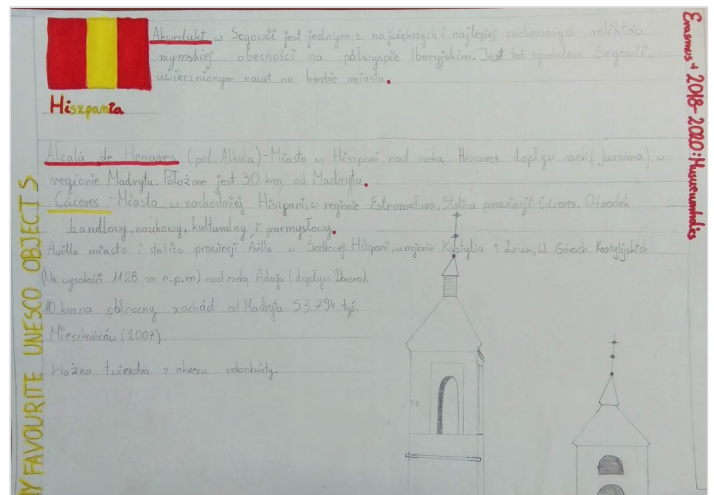 Akwedukt w Segowii jest jednym z największych i najlepiej zachowanych reliktów
rzymskiej obecności na półwyspie Iberyjskim. Jest też symbolem Segowii,
uwiecznionym nawet na herbie miasta.
Hiszpania
Alcalá de Henares (pol. Alkala) - Miasto w Hiszpani nad rzeką Henares dopływ rzeki (Jarama), w
regionie Madrytu. Położone jest 30 km od Madrytu.
Cácores - Miasto w zachodniej Hiszpani, w regionie Estremadura. Stolica prowincji Cáceres. Ośrodek
handlowy, naukowy, kulturalny i przemysłowy.
Avilla miasto i stolica prowincji Ávila w Środkowej Hiszpani, w rejonie Kastylia i Leun, W Górach Kastylijskich
(Na wysokości 1128 m n.p.m) nad rzeką Adaja (dopływ Duero),
110 km na północny zachód od Madrytu 53.794 tyś.
Mieszkańców (2007).
Ważna twierdza z okresu rekonkwisty.
MY FAVOURITE UNESCO OBJECTS
Erasmus + 2018-2020: